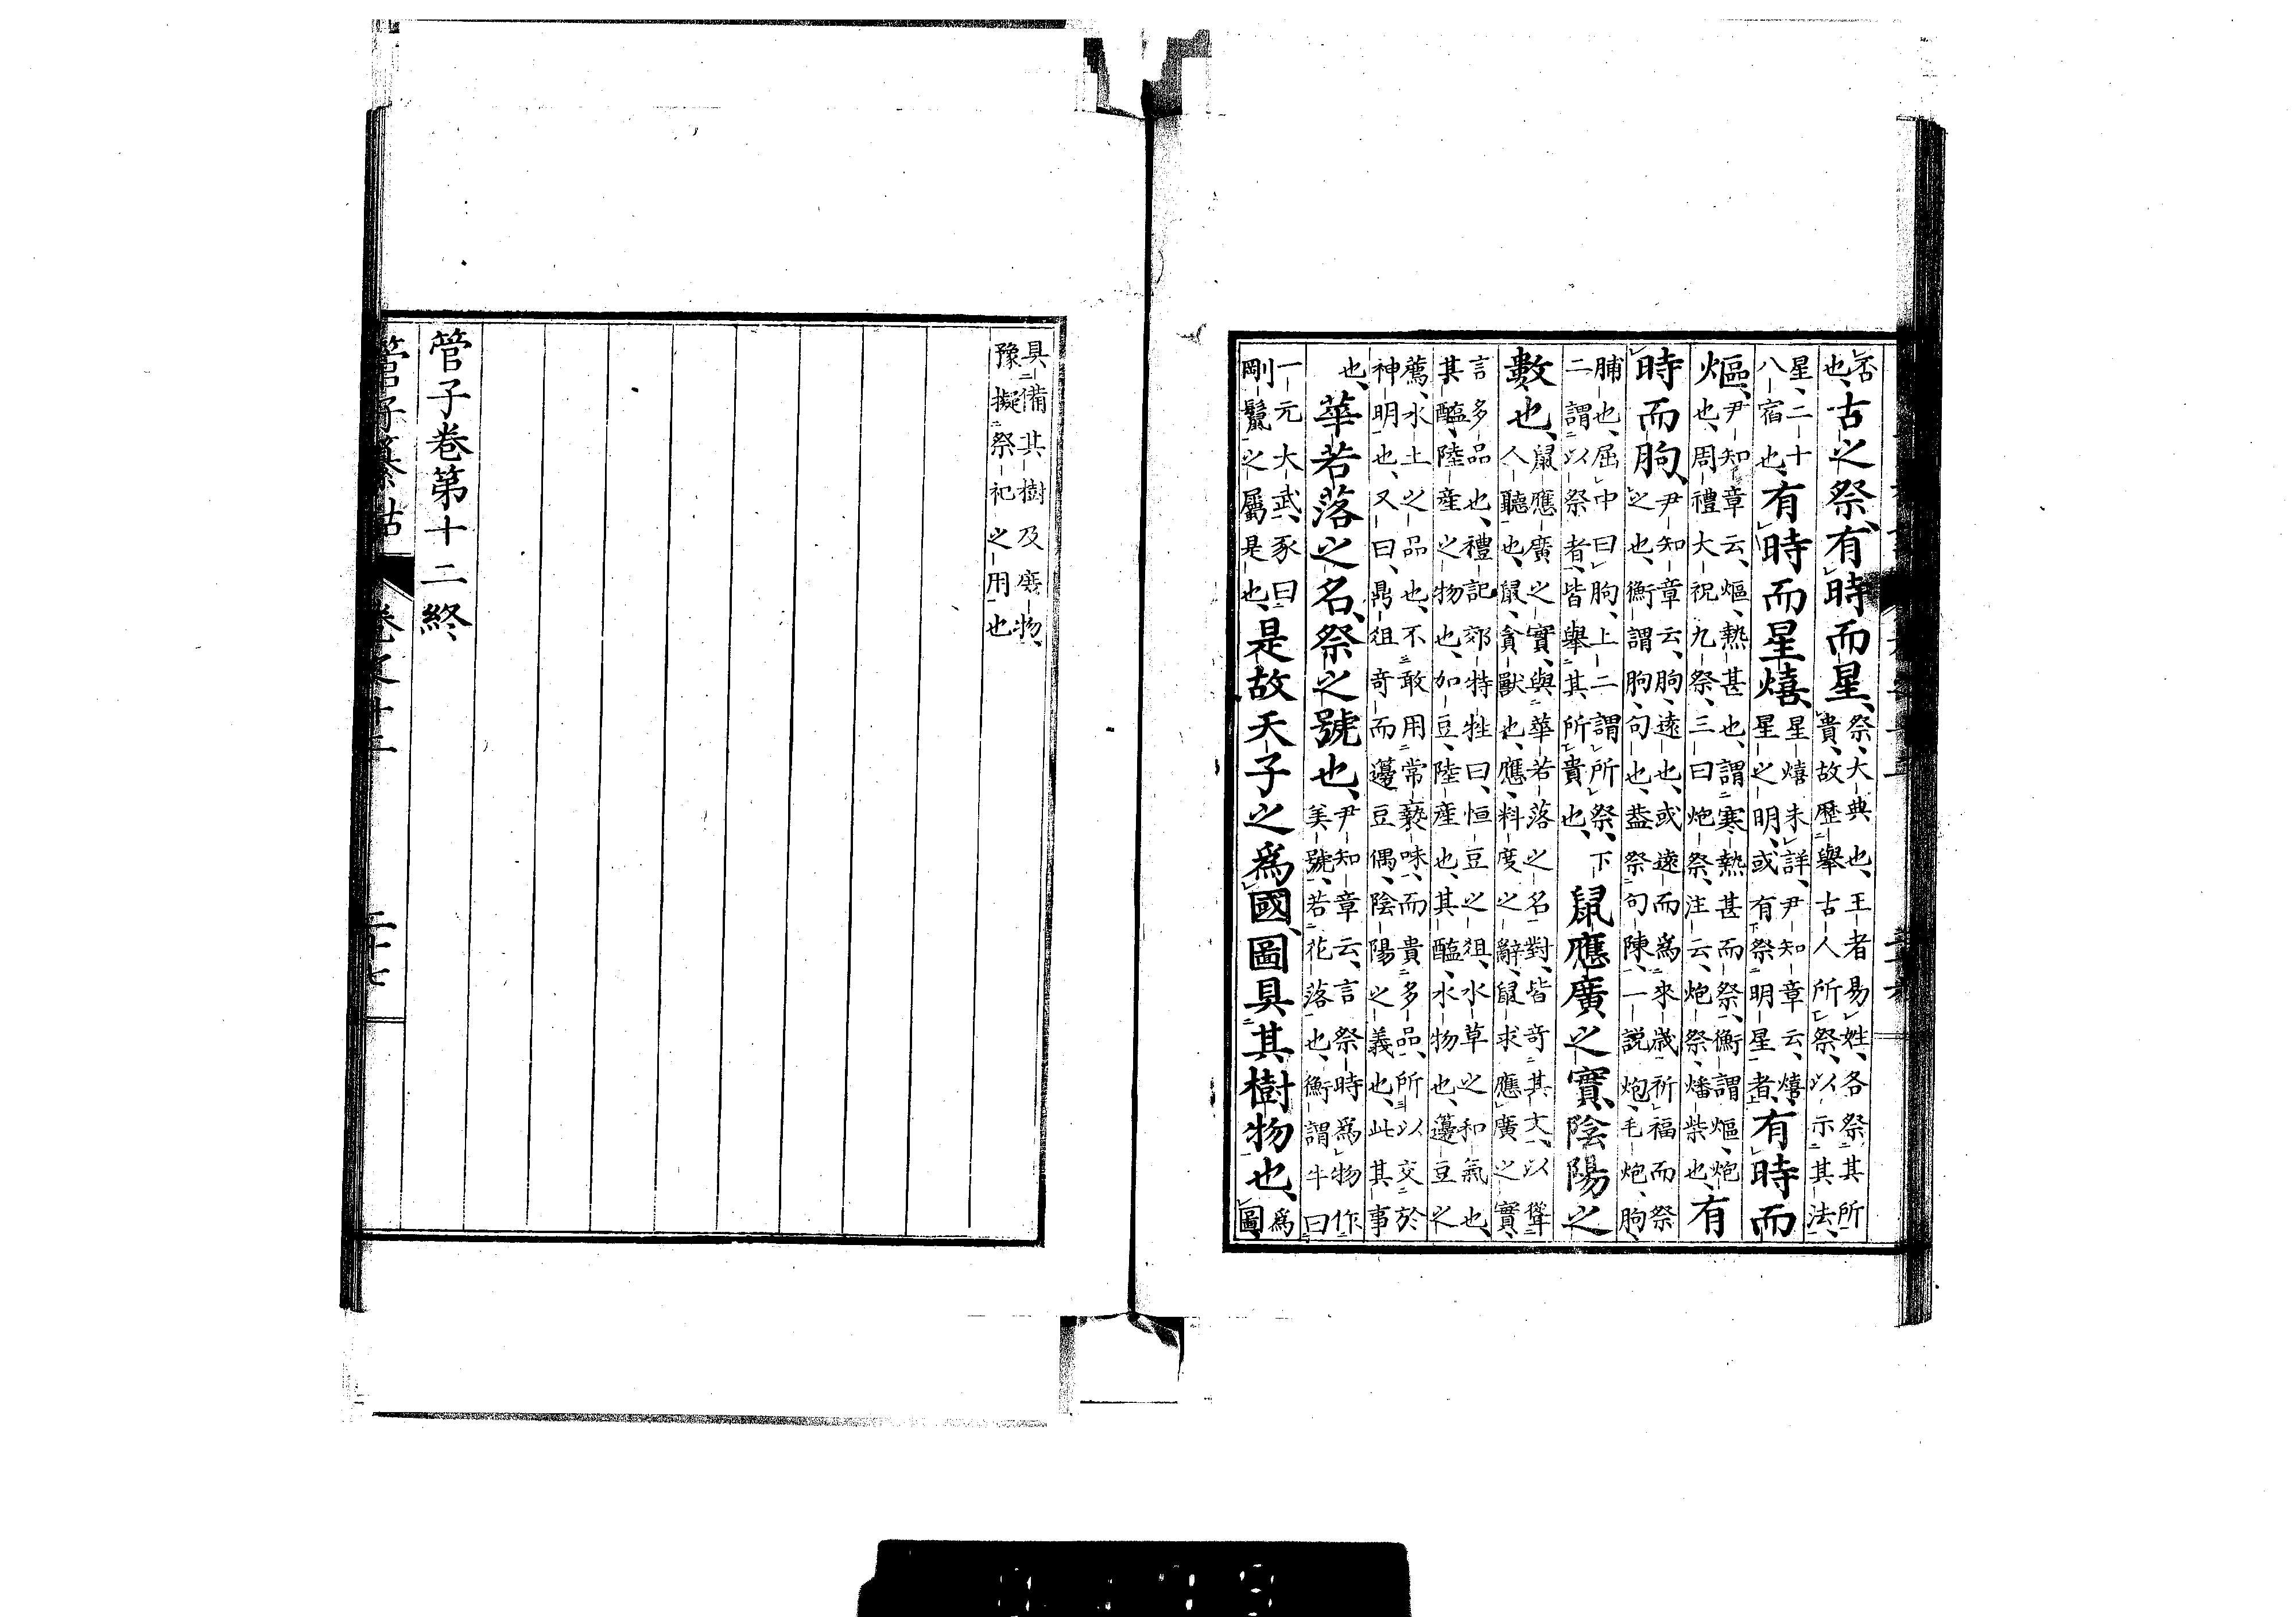 否也、古之祭、有時而星、祭、大典也、王者易姓、各祭其所貴、故歷舉古人所祭、以示其法、
星、二十八宿也、有時而星熺、星熺未詳、尹知章云、熺、星之明、或有祭明星者、有時而
熰、尹知章云、熰、熱甚也、謂寒熱甚而祭、衡謂熰、炮也、周禮大祝九祭、三曰炮祭、注云、炮祭、燔柴也、有
時而朐、尹知章云、朐、遠也、或遠而爲來歲祈福而祭之也、衡謂朐、句也、葢祭句陳、一説炮、毛炮、朐、
脯也、屈中曰朐、上二謂所祭、下二謂以祭者、皆舉其所貴也、鼠應廣之實、陰陽之
數也、鼠應廣之實、與華若落之名對、皆奇其文、以聳人聽也、鼠、貪獸也、應、料度之辭、鼠求應廣之實、
言多品也、禮記郊特牲曰、恒豆之俎、水草之和氣也、其醢、陸產之物也、加豆、陸產也、其醢、水物也、籩豆之
薦、水土之品也、不敢用常褻味、而貴多品、所以交於神明也、又曰、鼎俎奇而籩豆偶、陰陽之義也、此其事
也、華若落之名、祭之號也、尹知章云、言祭時爲物作美號、若花落也、衡謂牛曰
一元大武、豕曰剛鬣之屬是也、是故天子之爲國、圖具其樹物也、爲圖、
具備其樹及庶物、豫擬祭祀之用也
管子卷第十二終、
管子纂詁 卷第十二 二十七